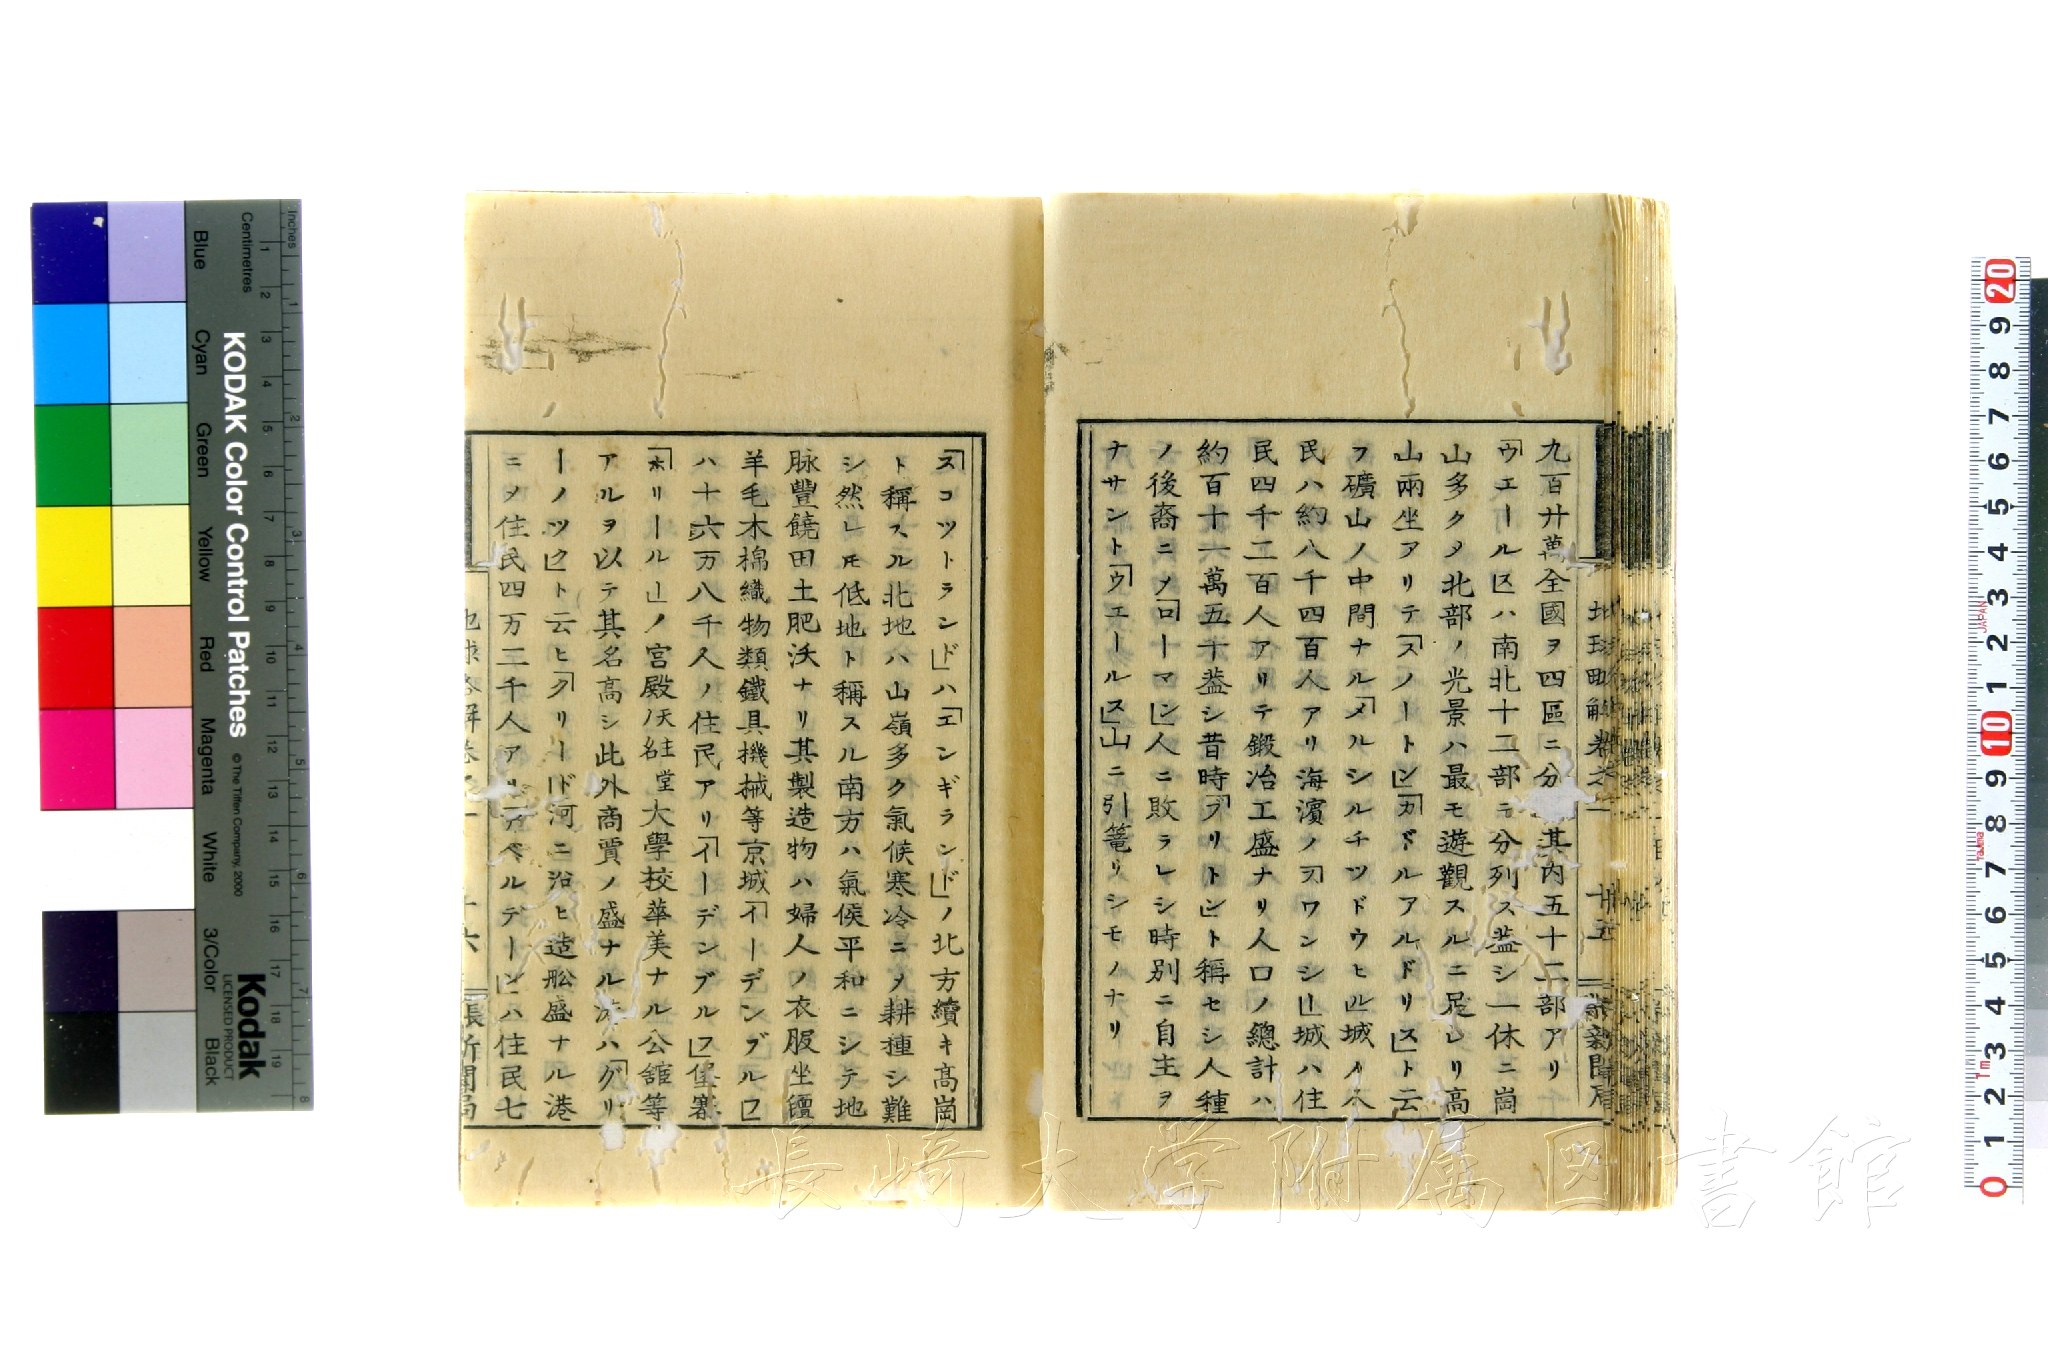 九百廿萬全國ヲ四區ニ分 其内五十二部アリ
「ウエールス」ハ南北十二部ニ分列ス蓋シ一休ニ崗
山多クタ北部ノ光景ハ最モ遊觀スルニ足レリ高
山兩坐アリテ「スノートン」「カドルアルドリス」ト云
フ礦山ノ中間ナル「メルシルチツドウヒル」城ノ人
民ハ約八千四百人アリ海濱ノ「スワンシー」城ハ住
民四千二百人アリテ鍛冶工盛ナリ人口ノ總計ハ
約百十一萬五千蓋シ昔時「ブリトン」ト稱セシ人種
ノ後裔ニメ「ローマン」人ニ敗ラレシ時別ニ自主ヲ
ナサント「ウエールス」山ニ引篭リシモノナリ
地球略解卷之一 廿五 崎新聞局
「スコツトランド」ハ「エンギランド」ノ北方續キ高崗
ト稱スル北地ハ山嶺多ク氣候寒冷ニメ耕種シ難
シ然レモ低地ト稱スル南方ハ氣侯平和ニシテ地
脉豐饒田土肥沃ナリ其製造物ハ婦人ノ衣服坐氈
羊毛木棉織物類鐵具機械等京城「イーデンブルロ」
ハ十六万八千人ノ住民アリ「イーデンブルフ」堡寨
「ホリールー」ノ宮殿天主堂大學校華美ナル公舘等
アルヲ以テ其名高シ此外商賈ノ盛ナル湊ハ「グリ
ーノツク」ト云ヒ「クリード」河ニ沿ヒ造舩盛ナル港
ニメ住民四万二千人アリ「アベルデーン」ハ住民七
地球略解卷之一 廿六 長崎新聞局
長崎大学附属図書館
KODAK Color Control Patches
© The Tiffen Company, 2000
Kodak
LICENSED PRODUCT
Inches 1 2 3 4 5 6 7 8
Centimetres 1 2 3 4 5 6 7 8 9 10 11 12 13 14 15 16 17 18 19
Blue Cyan Green Yellow Red Magenta White 3/Color Black
20 9 8 7 6 5 4 3 2 1 10 9 8 7 6 5 4 3 2 1 0
JAPAN
Tajima
Tm